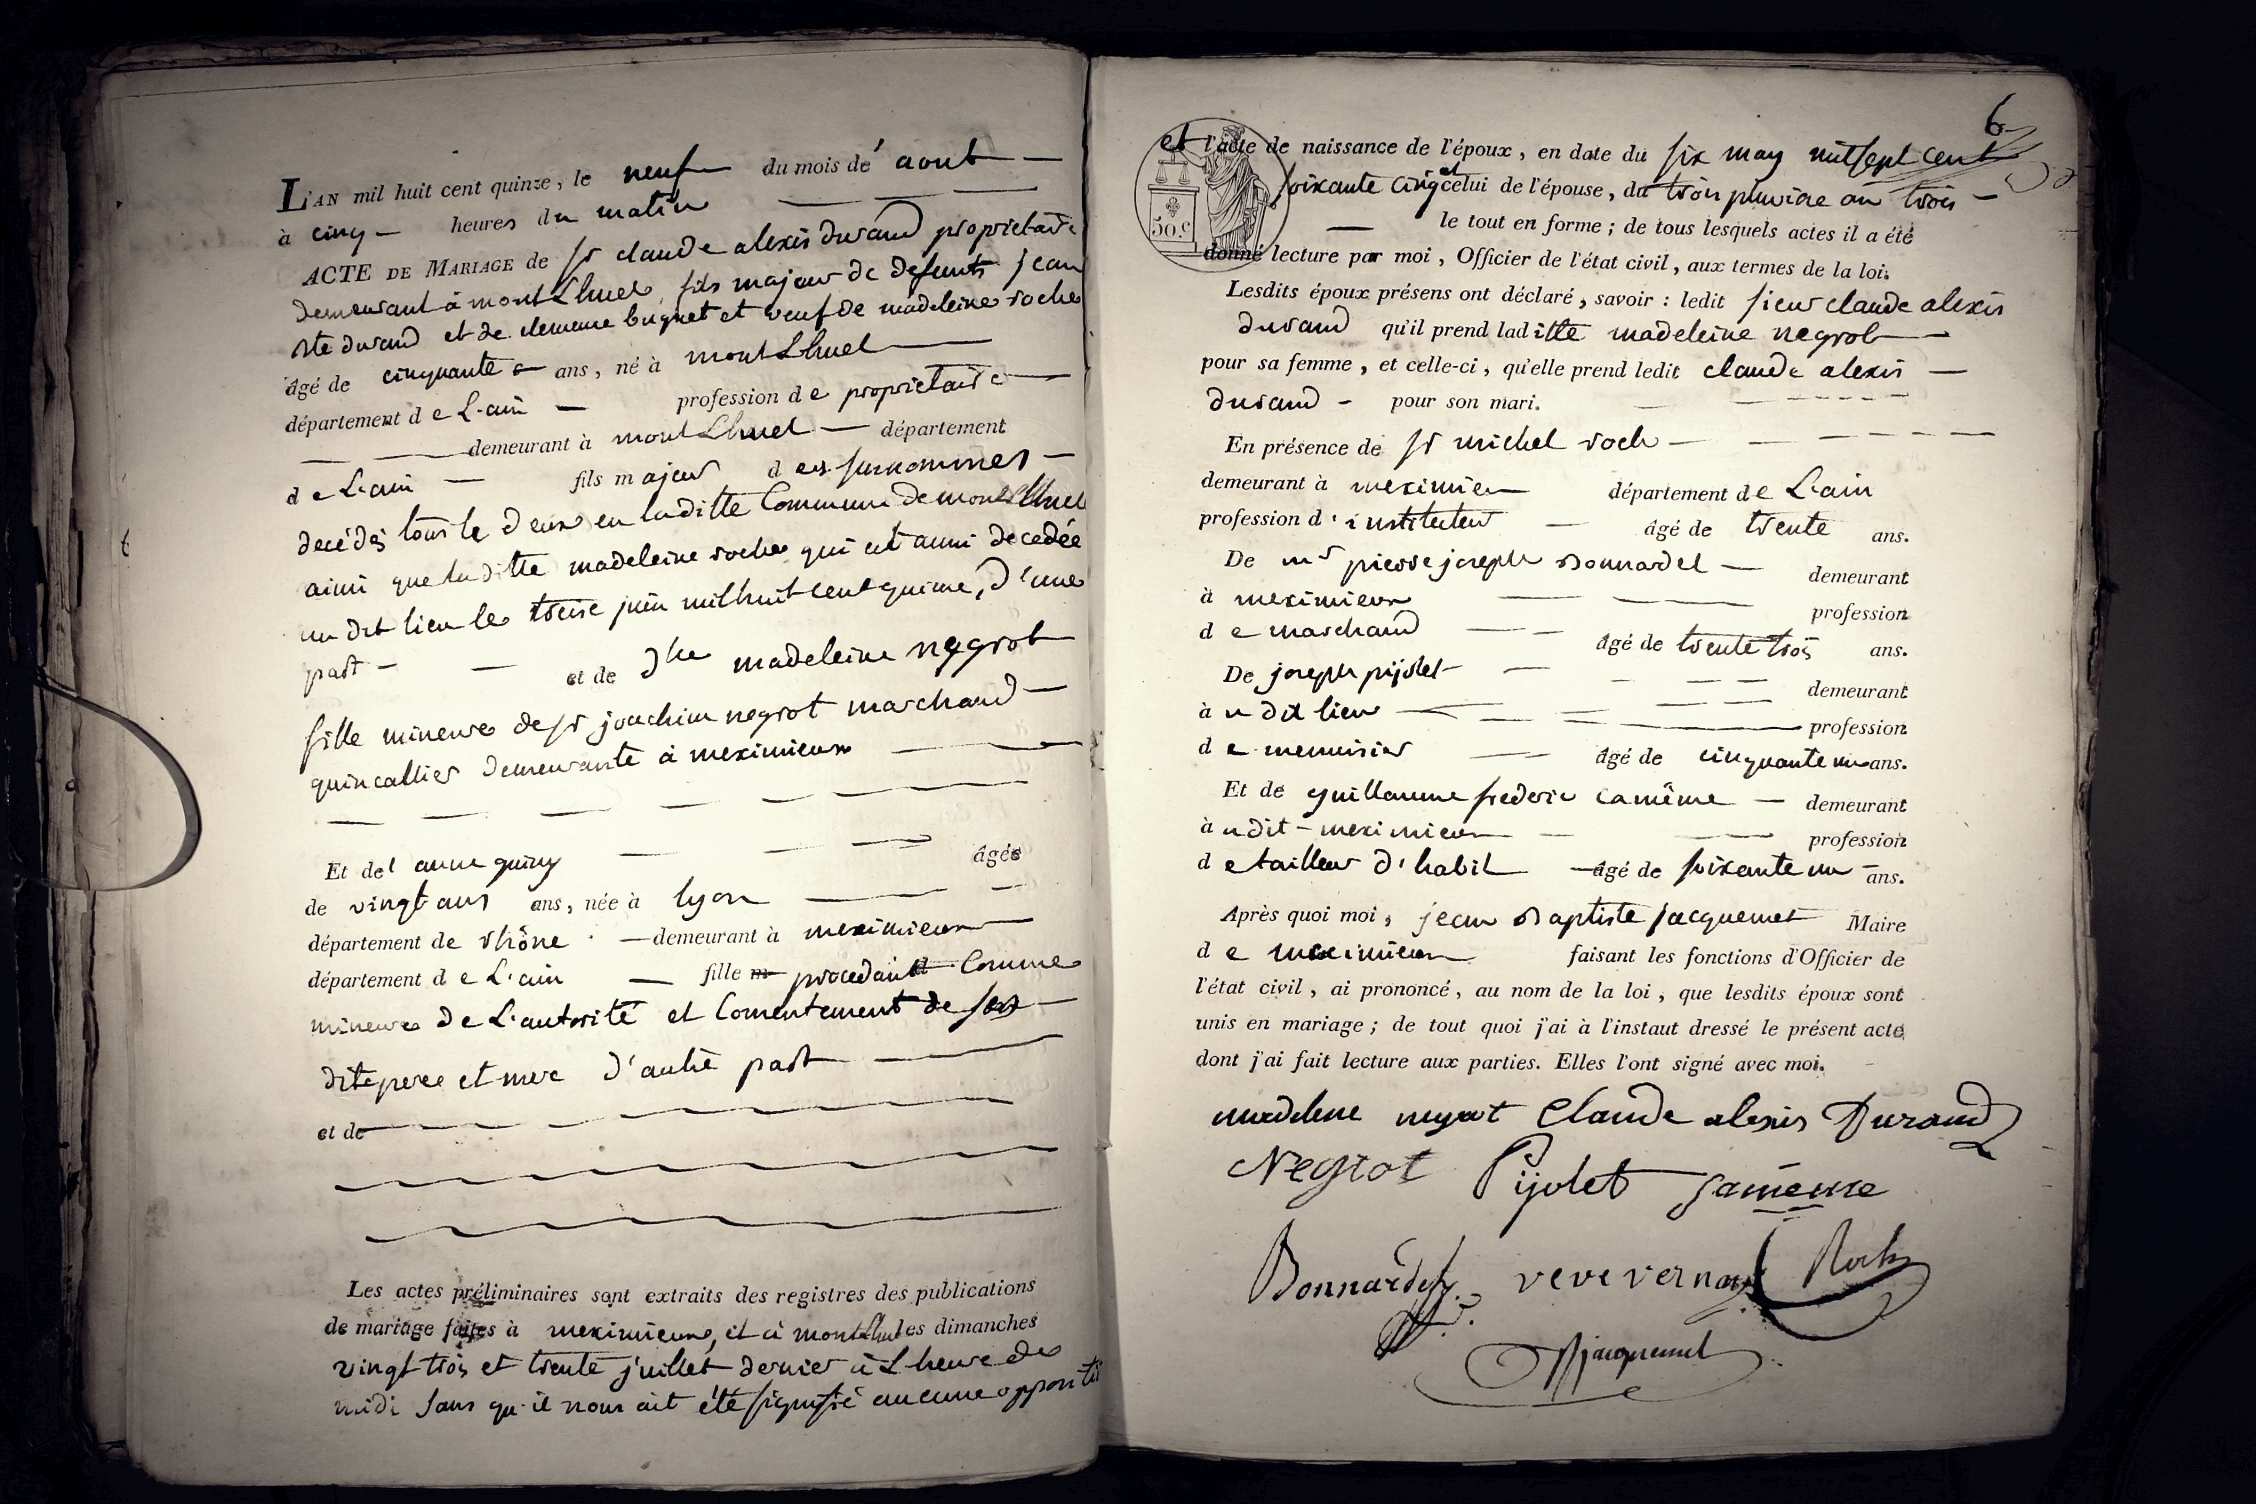 L'AN mil huit cent quinze, le neuf du mois de aout
à cinq heures du matin
ACTE DE MARIAGE de sr claude alexis durand proprietaire
demeurant à montLluel, fils majeur de defunts jean
bte durand et de clemence buguet et veuf de madeleine roche
âgé de cinquante ans, né à montLluel
département de L'ain profession de proprietaire
demeurant à montLluel département
de L'ain fils majeur des surnommés
decédés tous le deux en laditte Commune de montLluel
ainsi que laditte madeleine roche qui est aussi decedée
au dit lieu le treize juin mil huit cent quinze, d'une
part et de dlle madeleine negrot
fille mineure de sr joachim negrot marchand
quincallier demeurante à meximieux
Et de anne âgée
de vingt ans ans, née à lyon
département de rhône demeurant à meximieux
département de L'ain fille procedant Comme
mineure de L'autorité et Consentement de ses
dits pere et mere d'autre part
et de
Les actes préliminaires sont extraits des registres des publications
de mariage faites à meximieux, et à montLluel les dimanches
vingt trois et trente juillet dernier à L'heure de
midi sans qu'il nous ait été signifié aucune oppositi
6
et l'acte de naissance de l'époux, en date du six may mil sept cent
soixante cinq et celui de l'épouse, du trois pluviose an trois
50.c
le tout en forme; de tous lesquels actes il a été
donné lecture par moi, Officier de l'état civil, aux termes de la loi.
Lesdits époux présens ont déclaré, savoir: ledit sieur claude alexis
durand qu'il prend laditte madeleine negrot
pour sa femme, et celle-ci, qu'elle prend ledit claude alexis
durand pour son mari.
En présence de sr michel roch
demeurant à meximieu département de L'ain
profession d'instituteur âgé de trente ans.
De mr pierre joseph Bonnardel demeurant
à meximieux profession
de marchand âgé de trente trois ans.
De joseph pijolet demeurant
à udit lieu profession
de menuisier âgé de cinquante un ans.
Et de guillaume frederic camême demeurant
à udit meximieux profession
de tailleur d'habit âgé de soixante un ans.
Après quoi moi, jean Baptiste jacquemet Maire
de meximieux faisant les fonctions d'Officier de
l'état civil, ai prononcé, au nom de la loi, que lesdits époux sont
unis en mariage; de tout quoi j'ai à l'instaut dressé le présent acte
dont j'ai fait lecture aux parties. Elles l'ont signé avec moi.
madelene negrot Claude alexis Durand
Negrot Pijolet
Bonnardel veve vernay Roch
jacquemet